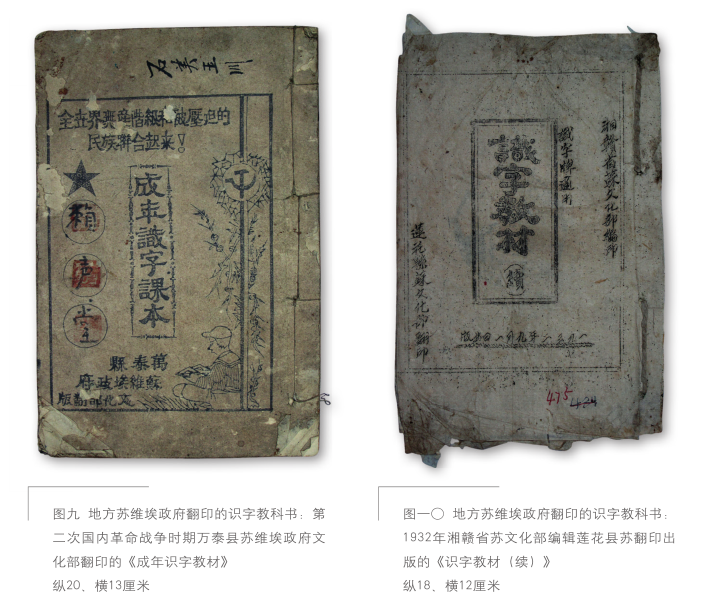 全世界無產階級和被壓迫的
民族聯合起來！
成年識字課本
賴
声
堂
萬泰縣
蘇維埃政府
文化部翻版
湘贛省蘇文化部編印
識字牌適用
識字教材
（續）
蓮花縣蘇文化部翻印
475
图九 地方苏维埃政府翻印的识字教科书：第
二次国内革命战争时期万泰县苏维埃政府文
化部翻印的《成年识字教材》
纵20、横13厘米
图一〇 地方苏维埃政府翻印的识字教科书：
1932年湘赣省苏文化部编辑莲花县苏翻印出
版的《识字教材（续）》
纵18、横12厘米